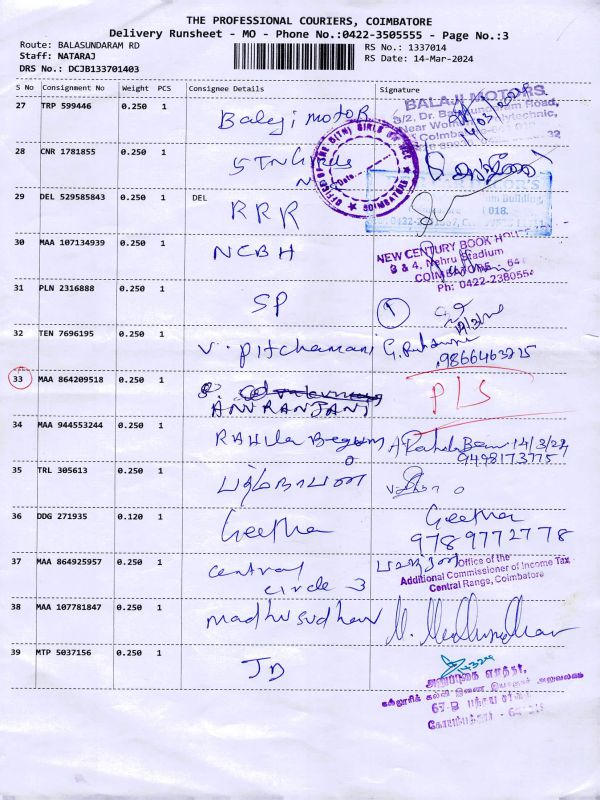 THE PROFESSIONAL COURIERS, COIMBATORE
Delivery Runsheet - MO - Phone No.:0422-3505555 - Page No.:3
Route: BALASUNDARAM RD
RS No.: 1337014
Staff: NATARAJ
RS Date: 14-Mar-2024
DRS No.: DCJB133701403
S No Consignment No Weight PCS Consignee Details Signature
27 TRP 599446 0.250 1 Balaji motor
BALAJI MOTORS
28 CNR 1781855 0.250 1
29 DEL 529585843 0.250 1 DEL RRR
30 MAA 107134939 0.250 1 NCBH
NEW CENTURY BOOK HOUSE
Nehru Stadium
COIMBATORE
Ph: 0422-238055
31 PLN 2316888 0.250 1 SP 1
32 TEN 7696195 0.250 1 V. Pitchamani
33 MAA 864209518 0.250 1 ANURANJANI
34 MAA 944553244 0.250 1 RAHila Begum 14/3/24
9498173775
35 TRL 305613 0.250 1
36 DDG 271935 0.120 1 Geetha Geetha
9789772778
37 MAA 864925957 0.250 1 central circle 3
Office of the
Additional Commissioner of Income Tax
Central Range, Coimbatore
38 MAA 107781847 0.250 1 madhusudhan
39 MTP 5037156 0.250 1 JD